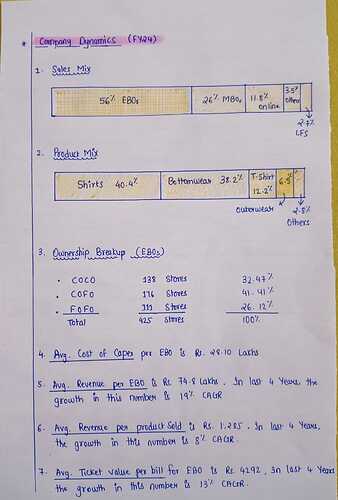 * Company Dynamics (FY24)
1. Sales Mix
56% EBOs
26% MBOs
11.8% online
3.5% Others
2.7% LFS
2. Product Mix
Shirts 40.4%
Bottomwear 38.2%
T-Shirt 12.2%
6.5%
Outerwear
2.8% Others
3. Ownership Breakup (EBOs)
• COCO 138 Stores 32.47%
• COFO 176 Stores 41.41%
• FOFO 111 Stores 26.12%
Total 425 Stores 100%
4. Avg. Cost of Capex per EBO is Rs. 28.10 Lakhs
5. Avg. Revenue per EBO is Rs 74.8 Lakhs. In last 4 Years, the
growth in this number is 19% CAGR
6. Avg. Revenue per product Sold is Rs. 1,285. In last 4 Years,
the growth in this number is 8% CAGR.
7. Avg. Ticket value per bill for EBO is Rs 4292, In last 4 Years
growth in this number is 13% CAGR.